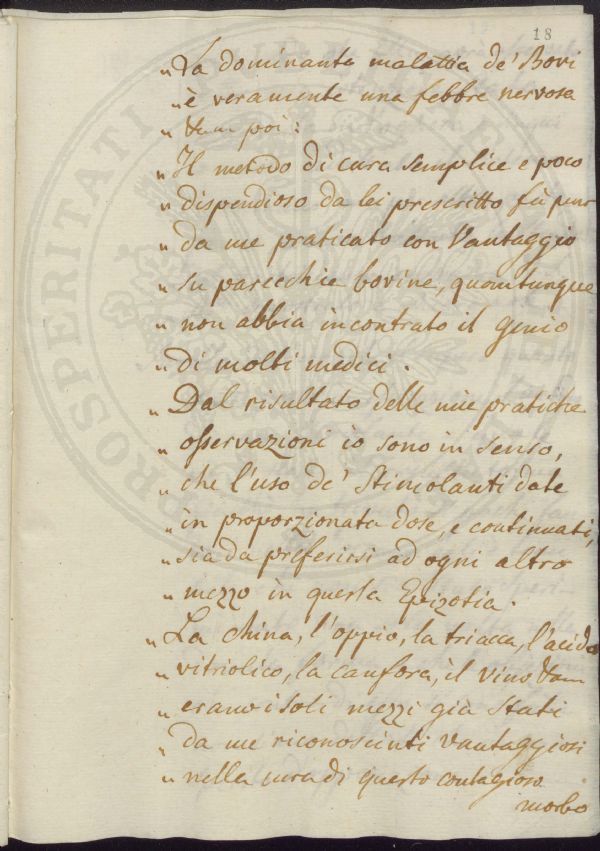 18
„ La dominante malattia de' Bovi
„ è veramente una febbre nervosa
„ poi:
„ Il metodo di cura semplice e poco
„ dispendioso da lei prescritto fù pur
„ da me praticato con Vantaggio
„ su parecchie bovine, quantunque
„ non abbia incontrato il genio
„ di molti medici.
„ Dal risultato delle mie pratiche
„ osservazioni io sono in senso,
„ che l'uso de' Stimolanti date
„ in proporzionata dose, e continuati,
„ sia da preferirsi ad ogni altro
„ mezzo in questa Epizotia.
„ La china, l'oppio, la triacca, l'acido
„ vitriolico, la canfora, il vino
„ erano i soli mezzi già stati
„ da me riconosciuti vantaggiosi
„ nella cura di questo contagioso
morbo
PROSPERITATI